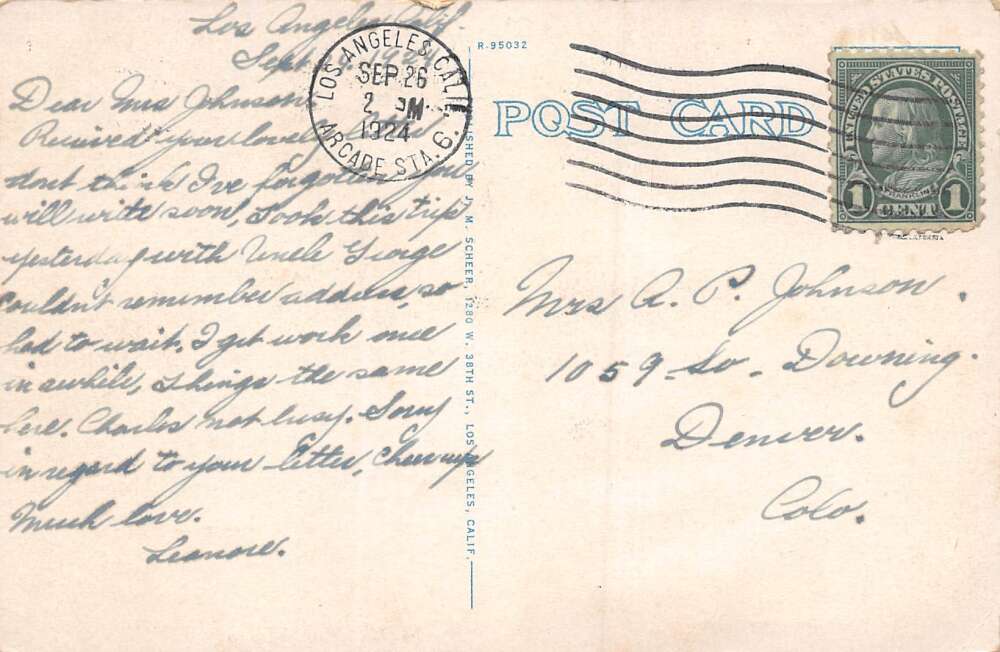 Los Angeles Calif.
Sept
Dear Mrs Johnson
Received your lovely
dont think I've forgotten you
will write soon, Took this trip
yesterday with Uncle George
couldn't remember address, so
had to wait. I get work once
in awhile, things the same
here. Charles not busy. Sorry
in regard to your letter, Cheer up
Much love.
Leanore.
LOS ANGELES, CALIF.
SEP 26
2 PM
1924
ARCADE STA. 6.
PUBLISHED BY J. M. SCHEER, 1280 W. 38TH ST., LOS ANGELES, CALIF.
R-95032
POST CARD
UNITED STATES POSTAGE
FRANKLIN
1 CENT 1
Mrs A. P. Johnson.
1059 So. Downing.
Denver.
Colo.